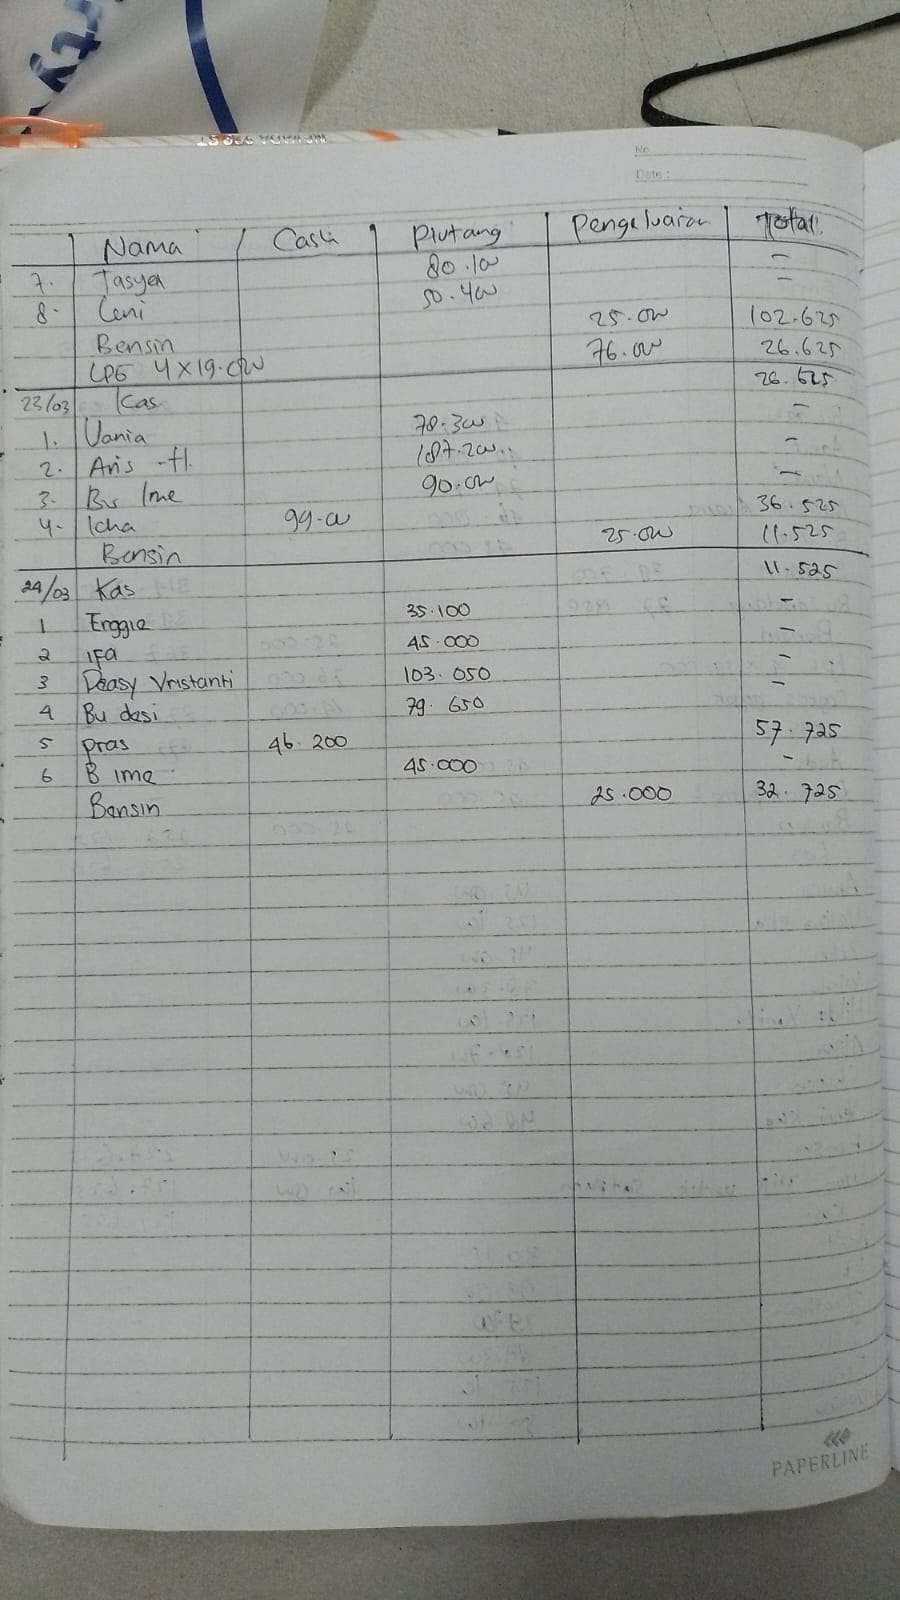 No
Date :
Nama Cash Piutang Pengeluaran Total.
7. Tasya 80.100 -
8. Ceni 50.400 -
Bensin 25.000 102.625
LPG 4x19.000 76.000 26.625
23/03 Kas 26.625
1. Vania 78.300 -
2. Aris -H. 187.200 -
3. Bu Ime 90.000 -
4. Icha 99.00 36.525
Bensin 25.000 11.525
24/03 Kas 11.525
1 Enggie 35.100 -
2 ifa 45.000 -
3 Deasy Vristanti 103.050 -
4 Bu desi 79.650 -
5 pras 46.200 57.725
6 B ime 45.000 -
Bensin 25.000 32.725
PAPERLINE